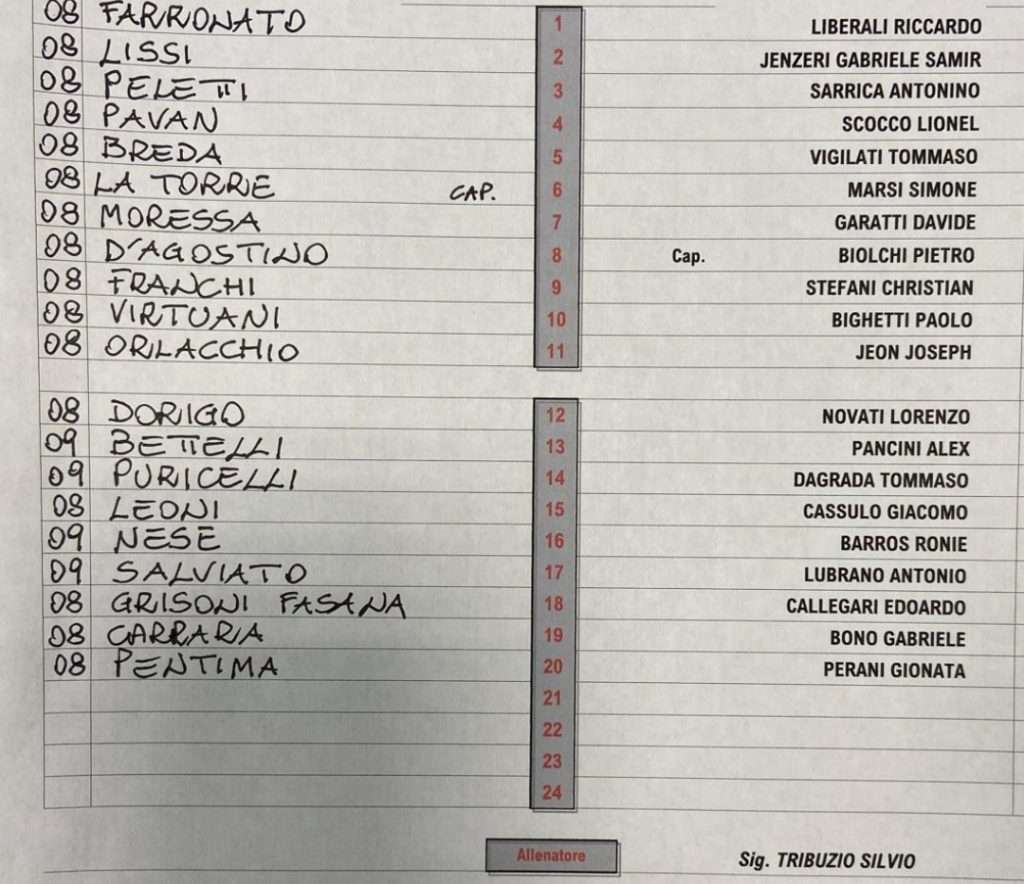 08 FARRONATO 1 LIBERALI RICCARDO
08 LISSI 2 JENZERI GABRIELE SAMIR
08 PELETTI 3 SARRICA ANTONINO
08 PAVAN 4 SCOCCO LIONEL
08 BREDA 5 VIGILATI TOMMASO
08 LA TORRE CAP. 6 MARSI SIMONE
08 MORESSA 7 GARATTI DAVIDE
08 D'AGOSTINO 8 Cap. BIOLCHI PIETRO
08 FRANCHI 9 STEFANI CHRISTIAN
08 VIRTUANI 10 BIGHETTI PAOLO
08 ORILACCHIO 11 JEON JOSEPH
08 DORIGO 12 NOVATI LORENZO
09 BETTELLI 13 PANCINI ALEX
09 PURICELLI 14 DAGRADA TOMMASO
08 LEONI 15 CASSULO GIACOMO
09 NESE 16 BARROS RONIE
09 SALVIATO 17 LUBRANO ANTONIO
08 GRISONI FASANA 18 CALLEGARI EDOARDO
08 CARRARIA 19 BONO GABRIELE
08 PENTIMA 20 PERANI GIONATA
21
22
23
24
Allenatore Sig. TRIBUZIO SILVIO